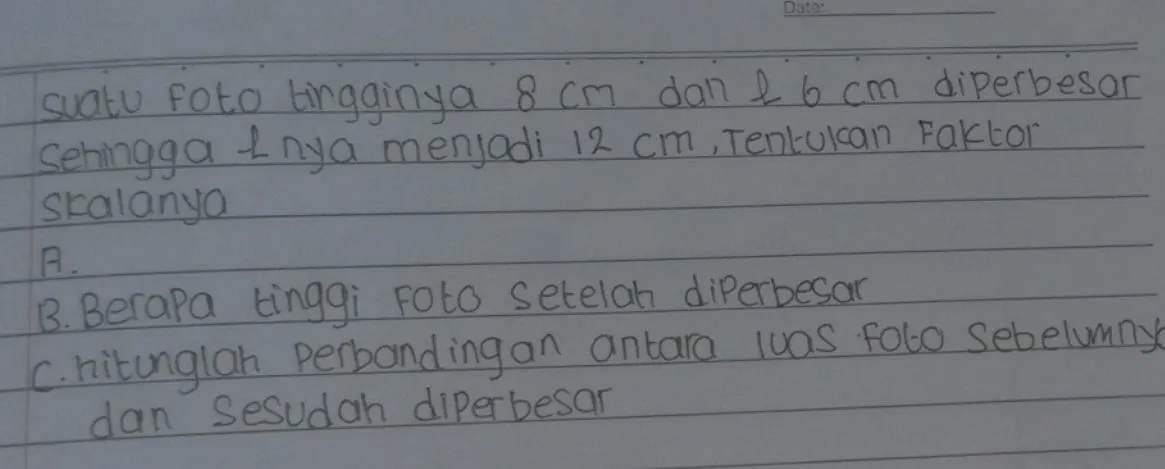 Date:
suatu Foto tingginya 8 cm dan l 6 cm diperbesar
sehingga l nya menjadi 12 cm, Tentukan Faktor
skalanya
A.
B. Berapa tinggi Foto setelah diperbesar
C. hitunglah perbandingan antara luas Foto sebelumny
dan sesudah diperbesar